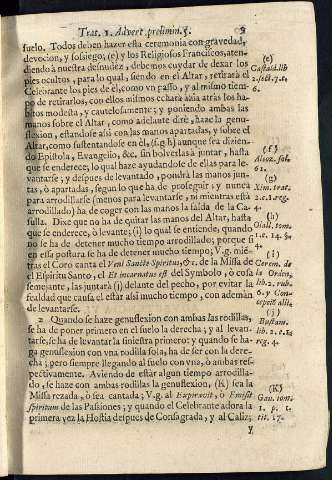 Trat. 1. Advert. prelimin. §. 9
suelo. Todos deben hazer esta ceremonia con gravedad,
devocion, y sosiego; (e) y los Religiosos Franciscos, aten-
diendo à nuestra desnudez, debemos cuydar de dexar los
pies ocultos, para lo qual, siendo en el Altar, retirarà el
Celebrante los pies de él, como vn passo, y al mismo tiem-
po de retirarlos, con ellos mismos echarà àzia atràs los ha-
bitos modesta, y cautelosamente; y poniendo ambas las
manos sobre el Altar, como adelante diré, haze la genu-
flexion, estandose assi con las manos apartadas, y sobre el
Altar, como sustentandose en èl, (f. g. h) aunque sea dizien-
do Epistola, Evangelio, &c. sin bolverlas à juntar, hasta
que se enderece; lo qual haze ayudandose de ellas para le-
vantarse; y despues de levantado, pondrà las manos jun-
tas, ò apartadas, segun lo que ha de proseguir; y nunca
para arrodillarse (menos para levantarse, ni mientras està
arrodillado) ha de coger con las manos la falda de la Ca-
sulla. Dixe que no ha de quitar las manos del Altar, hasta
que se enderece, ò levante; (i) lo qual se entiende, quando
no se ha de detener mucho tiempo arrodillado; porque si
en essa postura se ha de detener mucho tiempo; V.g. mie-
tras el Coro canta el Veni Sancte Spiritus, &c. de la Missa de
el Espiritu Santo, el Et incarnatus est del Symbolo, ò cosa
semejante, las juntarà (j) delante del pecho, por evitar la
fealdad que causa el estàr assi mucho tiempo, con ademàn
de levantarse.
2 Quando se haze genuflexion con ambas las rodillas,
se ha de poner primero en el suelo la derecha; y al levan-
tarse, se ha de levantar la siniestra primero: y quando se ha-
ga genuflexion con vna rodilla sola, ha de ser con la dere-
cha; pero siempre llegando al suelo con vna, ò ambas res-
pectivamente. Aviendo de estàr algun tiempo arrodilla-
do, se haze con ambas rodillas la genuflexion, (K) sea la
Missa rezada, ò sea cantada; V.g. al Expiravit, ò Emisit
spiritum de las Passiones; y quando el Celebrante adora la
primera vez la Hostia despues de Consagrada, y al Caliz;
y
(e)
Castald. lib
2. sect. 7. c.
6.
(f)
Alcoz. fol.
61.
(g)
Xim. trat.
2. c. 1. reg.
4.
(h)
Olall. tom.
1. c. 14. §.
4.
(i)
Cerem. de
la Orden,
lib. 2. rub.
6. y Con-
(j)
Bustam.
lib. 2. c. 12
reg. 4.
(K)
Gav. tom.
1. p. 1.
tit. 17.